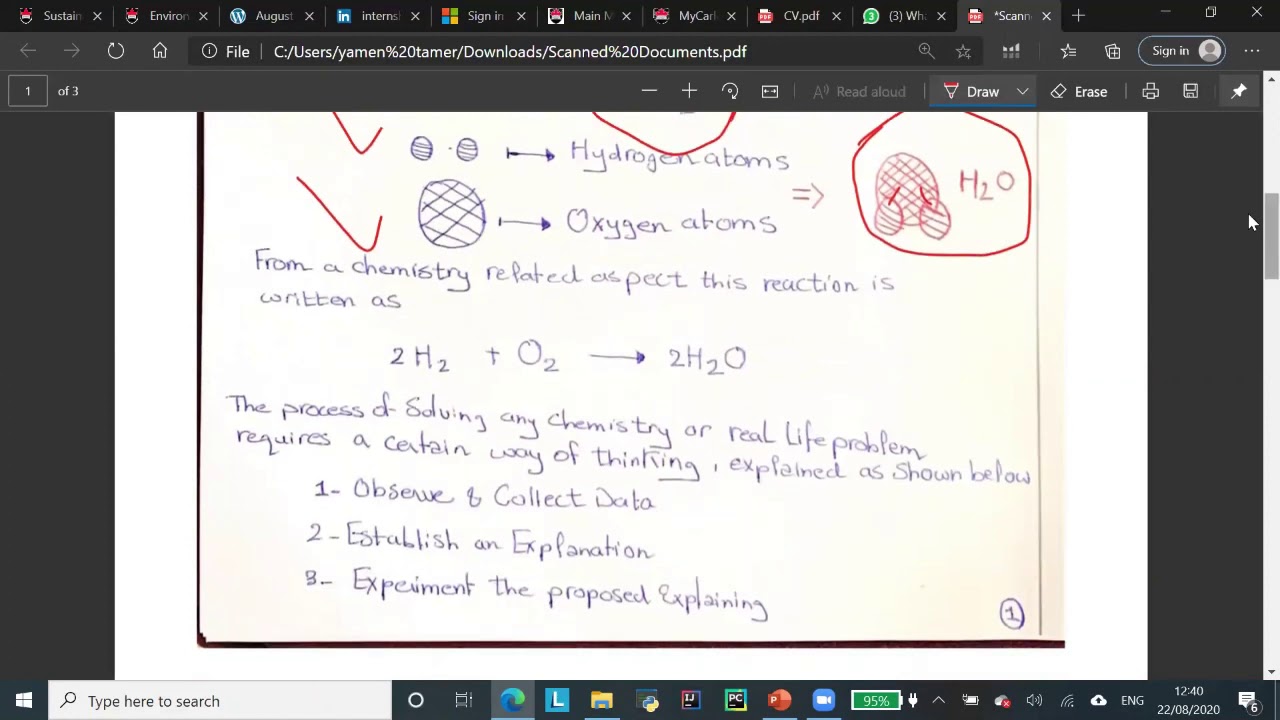 Sustain
Environ
August
interns
Sign in
Main M
MyCarl
CV.pdf
(3) Wha
*Scann
File C:/Users/yamen%20tamer/Downloads/Scanned%20Documents.pdf Sign in
1 of 3 Read aloud Draw Erase
Hydrogen atoms
H2O
Oxygen atoms
From a chemistry related aspect this reaction is
written as
2H2 + O2 → 2H2O
The process of Solving any chemistry or real life problem
requires a certain way of thinking, explained as shown below
1- Observe & Collect Data
2- Establish an Explanation
3- Experiment the proposed Explaining
1
Type here to search
95%
ENG
12:40
22/08/2020
6